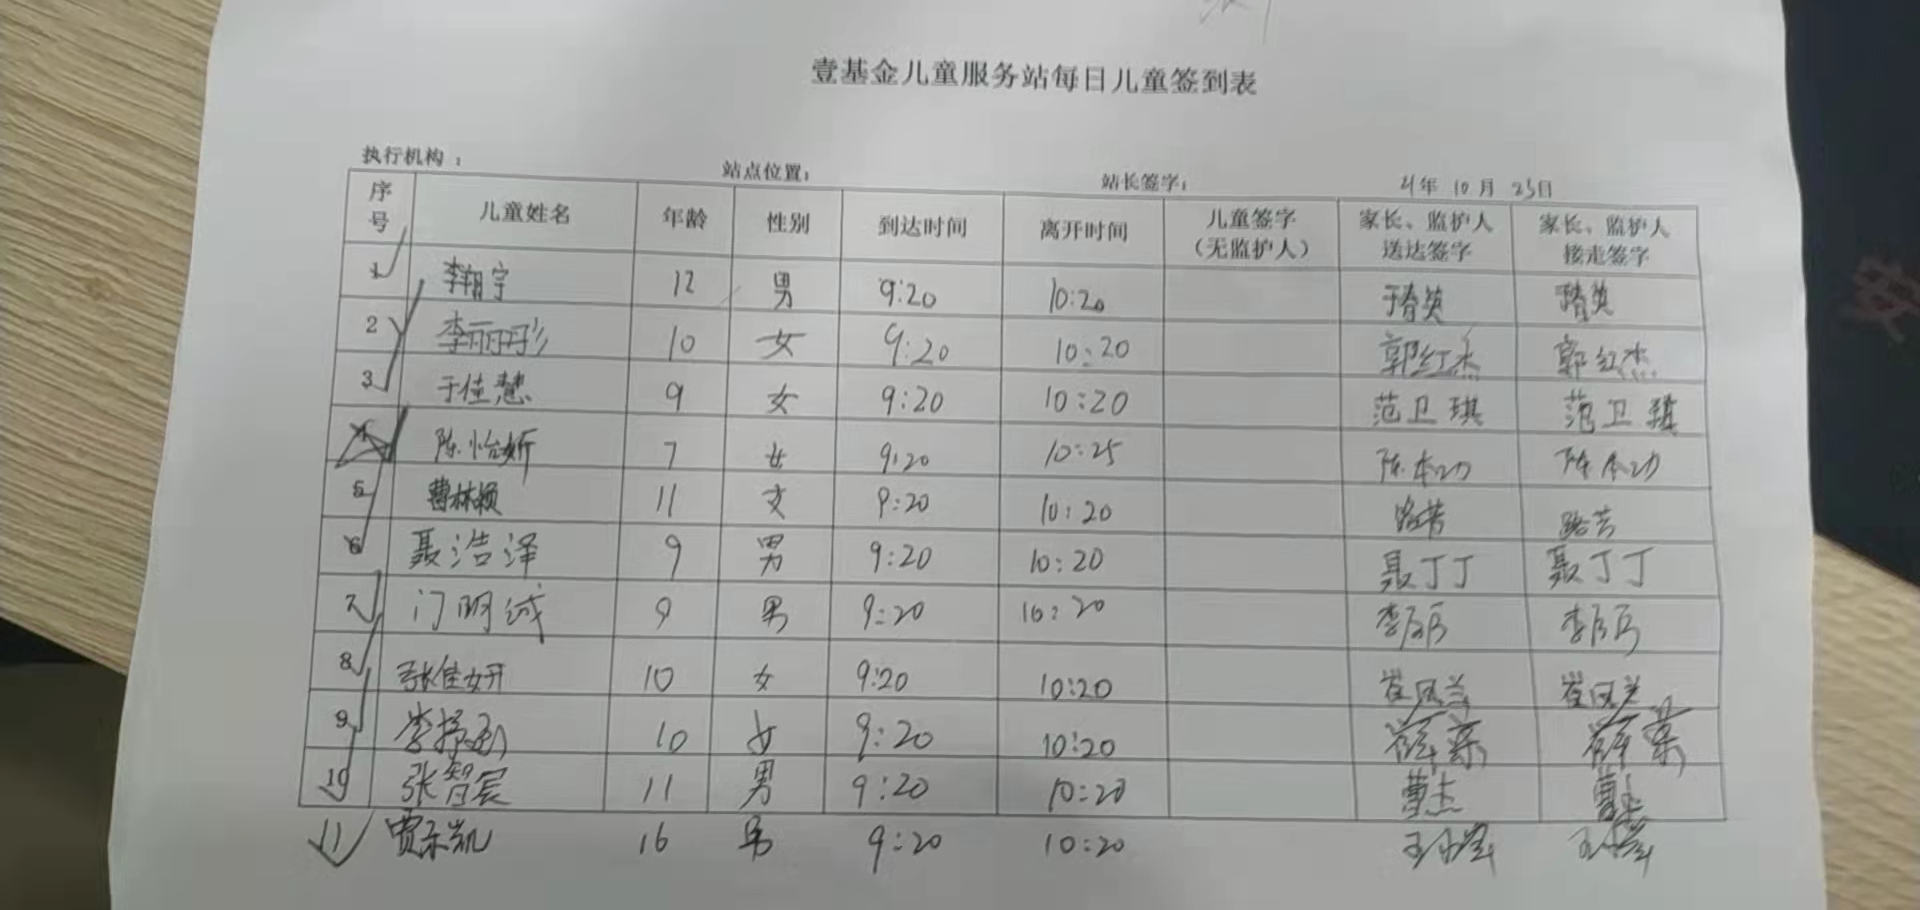 壹基金儿童服务站每日儿童签到表
执行机构： 站点位置： 站长签字： 21年 10月 23日
序号 儿童姓名 年龄 性别 到达时间 离开时间 儿童签字（无监护人） 家长、监护人送达签字 家长、监护人接走签字
1 李翔宇 12 男 9:20 10:20 于春英 于春英
2 李丽彤彡 10 女 9:20 10:20 郭红杰 郭红杰
3 于佳慧 9 女 9:20 10:20 范卫琪 范卫琪
4 陈怡妡 7 女 9:20 10:25 陈本功 陈本功
5 曹林颖 11 女 9:20 10:20 路芳 路芳
6 聂浩泽 9 男 9:20 10:20 聂丁丁 聂丁丁
7 门明诚 9 男 9:20 10:20 李
8 张佳妍 10 女 9:20 10:20 崔凤兰 崔凤兰
9 李 10 女 9:20 10:20 薛
10 张智宸 11 男 9:20 10:20 曹杰 曹杰
11 贾乐凯 16 男 9:20 10:20 王